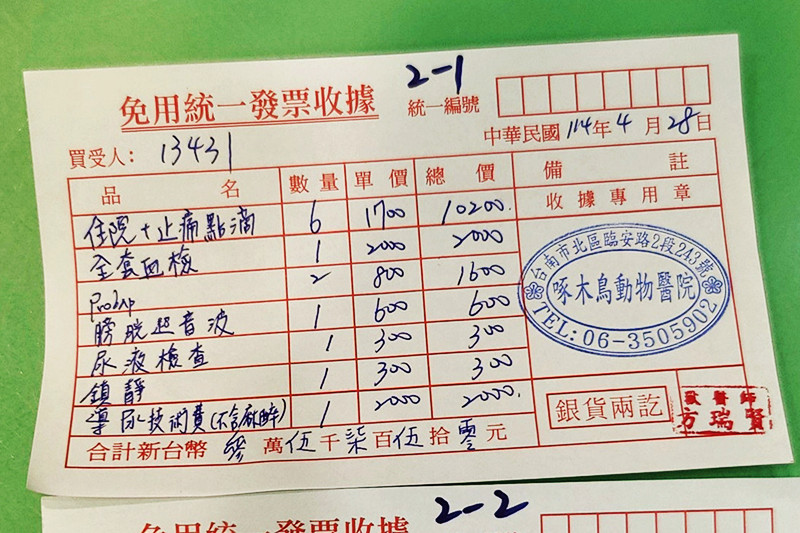 2-1
免用統一發票收據 統一編號
買受人: 13431 中華民國 114 年 4 月 28 日
品名 數量 單價 總價 備註
收據專用章
住院+止痛點滴 6 1700 10200.
全套血檢 1 2000 2000
2 800 1600
膀胱超音波 1 600 600
尿液檢查 1 300 300
鎮靜 1 300 300
導尿技術費(不含麻醉) 1 2000 2000.
合計新台幣 參 萬 伍 千 柒 百 伍 拾 零 元
台南市北區臨安路2段243號
啄木鳥動物醫院
TEL: 06-3505902
銀貨兩訖
獸醫師
方瑞賢
2-2
免用統一發票收據